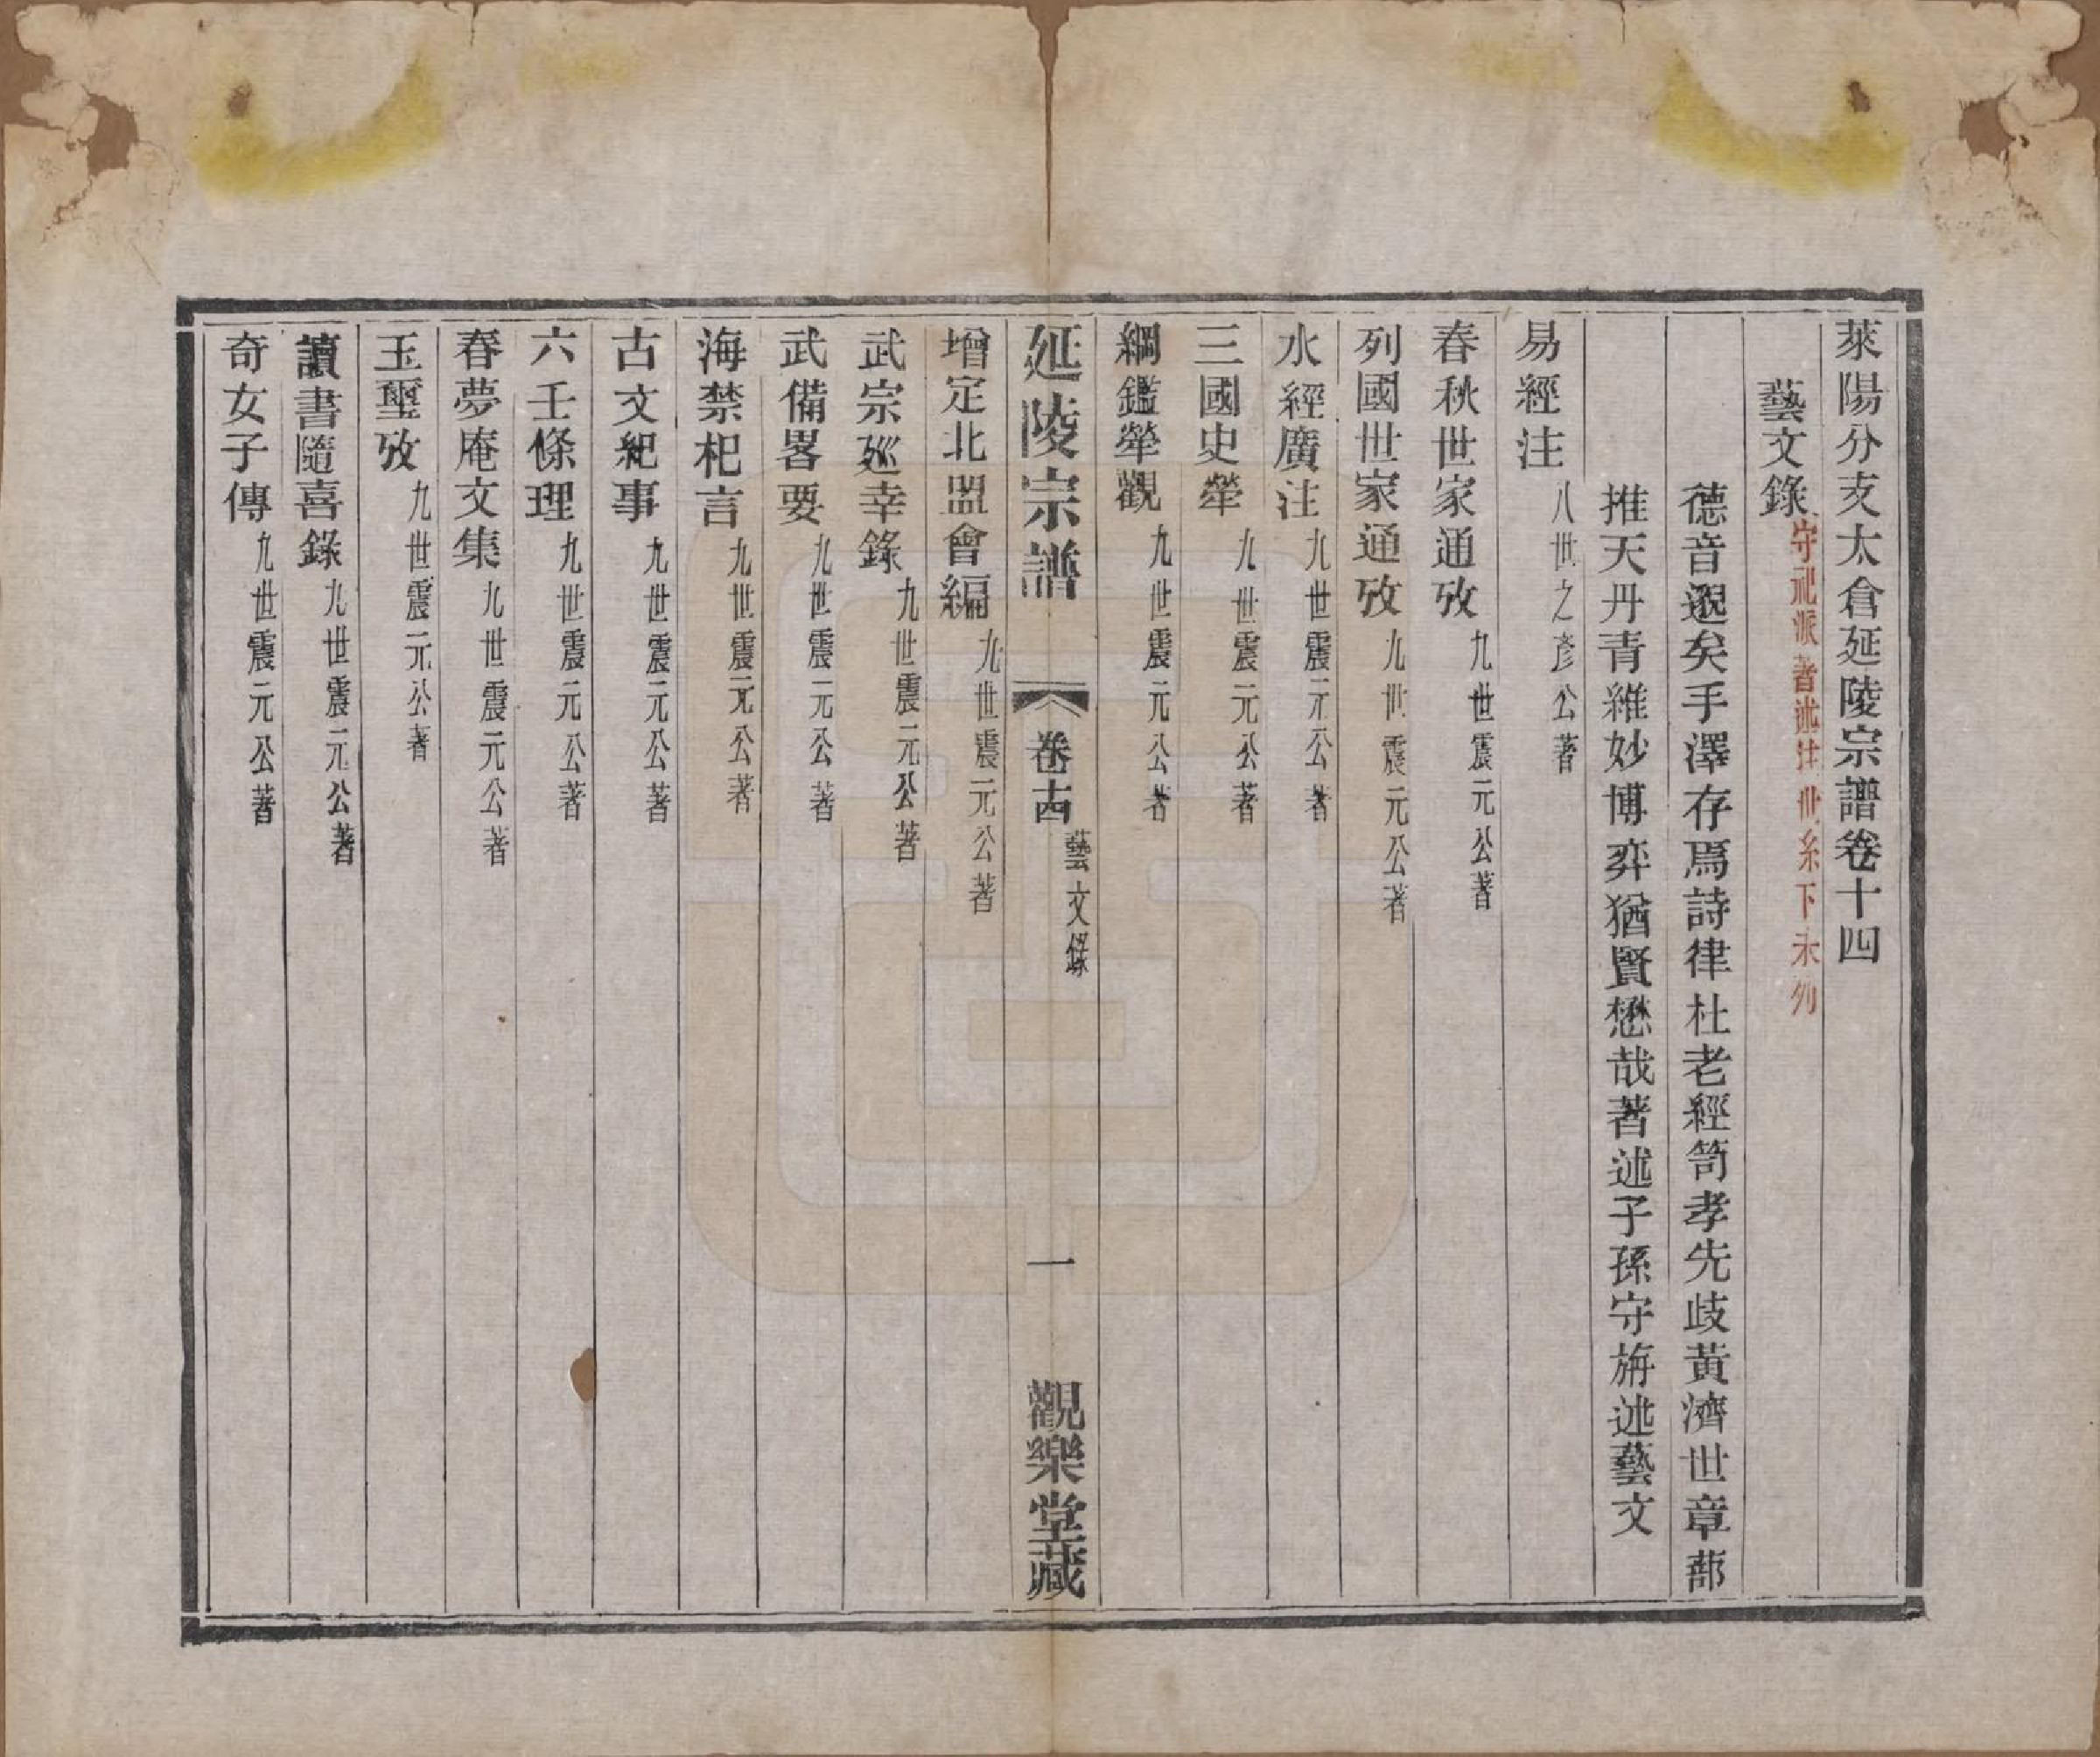 萊陽分支太倉延陵宗譜卷十四
藝文錄 守祀派著述注世系下未列
德音遐矣手澤存焉詩律杜老經笥孝先歧黃濟世章蔀
推天丹青維妙博弈猶賢懋哉著述子孫守旃述藝文
易經注 八世之彥公著
春秋世家通攷 九世震元公著
列國世家通攷 九世震元公著
水經廣注 九世震元公著
三國史犖 九世震元公著
綱鑑犖觀 九世震元公著
延陵宗譜 卷十四 藝文錄 一 觀樂堂藏
增定北盟會編 九世震元公著
武宗廵幸錄 九世震元公著
武備畧要 九世震元公著
海禁杞言 九世震元公著
古文紀事 九世震元公著
六壬條理 九世震元公著
春夢庵文集 九世震元公著
玉璽攷 九世震元公著
讀書隨喜錄 九世震元公著
奇女子傳 九世震元公著